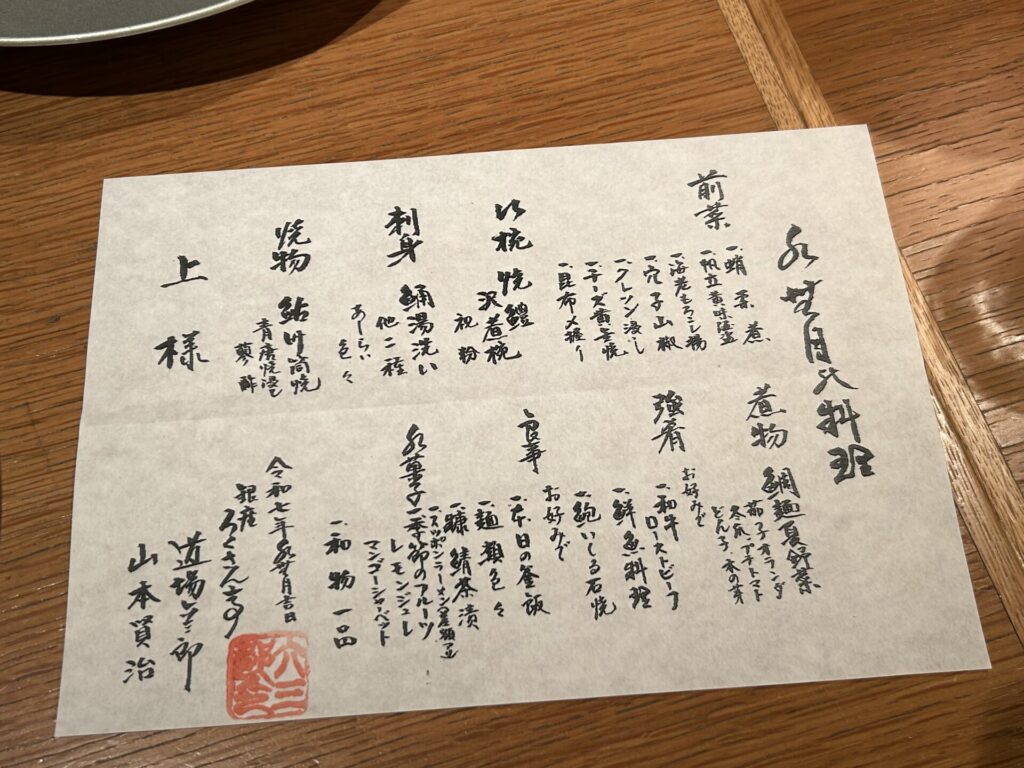 水無月の料理
前菜
一、蛸柔煮
一、帆立黄味酒盗
一、海老もろこし揚
一、穴子山椒
一、クレソン浸し
一、チーズ黄金焼
一、昆布〆握り
吸椀
焼鱧
沢煮椀
祝粉
刺身
鯒湯洗い
他二種
あしらい
色々
焼物
鮎竹筒焼
青唐焼浸し
蓼酢
上様
煮物
鯛麺夏野菜
茄子オランダ
冬瓜、プチトマト
どんこ、木の芽
強肴
お好みで
一、和牛
ローストビーフ
一、鮮魚料理
一、鮑いしる石焼
食事
お好みで
一、本日の釜飯
一、麺類色々
一、鯖茶漬
一、スッポンラーメン
水菓子
一、季節のフルーツ
レモンジュレ
マンゴーシャーベット
一、和物一品
令和七年水無月吉日
銀座
ろくさんてい
道場六三郎
山本賢治